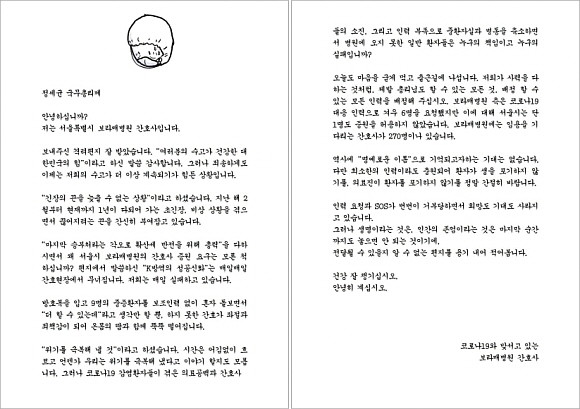 정세균 국무총리께
안녕하십니까?
저는 서울특별시 보라매병원 간호사입니다.
보내주신 격려편지 잘 받았습니다. "여러분의 수고가 건강한 대
한민국의 힘"이라고 하신 말씀 감사합니다. 그러나 죄송하게도
이제는 저희의 수고가 더 이상 계속되기가 힘든 상황입니다.
"긴장의 끈을 늦출 수 없는 상황"이라고 하셨습니다. 지난 해 2
월부터 현재까지 1년이 다되어 가는 초긴장, 비상 상황을 겪으
면서 끊어지려는 끈을 간신히 부여잡고 있습니다.
"마지막 승부처라는 각오로 확산세 반전을 위해 총력"을 다하
시면서 왜 서울시 보라매병원의 간호사 증원 요구는 모른 척
하십니까? 편지에서 말씀하신 "K방역의 성공신화"는 매일매일
간호현장에서 무너집니다. 저희는 매일 실패하고 있습니다.
방호복을 입고 9명의 중증환자를 보조인력 없이 혼자 돌보면서
"더 할 수 있는데"라고 생각만 할 뿐, 하지 못한 간호가 좌절과
죄책감이 되어 온몸의 땀과 함께 뚝뚝 떨어집니다.
"위기를 극복해 낼 것"이라고 하셨습니다. 시간은 어김없이 흐
르고 언젠가 우리는 위기를 극복해 냈다고 이야기 할지도 모릅
니다. 그러나 코로나19 감염환자들이 겪은 의료공백과 간호사
들의 소진, 그리고 인력 부족으로 중환자실과 병동을 축소하면
서 병원에 오지 못한 일반 환자들은 누구의 책임이고 누구의
실패입니까?
오늘도 마음을 굳게 먹고 출근길에 나섭니다. 저희가 사력을 다
하는 것처럼, 제발 총리님도 할 수 있는 모든 것, 배정 할 수
있는 모든 인력을 배정해 주십시오. 보라매병원 측은 코로나19
대응 인력으로 겨우 6명을 요청했지만 이에 대해 서울시는 단
1명도 증원을 허용하지 않았습니다. 보라매병원에는 임용을 기
다리는 간호사가 270명이나 있습니다.
역사에 "명예로운 이름"으로 기억되고자하는 기대는 없습니다.
다만 최소한의 인력이라도 충원되어 환자가 생을 포기하지 않
기를, 의료진이 환자를 포기하지 않기를 정말 간절히 바랍니다.
인력 요청과 SOS가 번번이 거부당하면서 희망도 기대도 사라지
고 있습니다.
그러나 생명이라는 것은, 인간의 존엄이라는 것은 마지막 순간
까지도 놓으면 안 되는 것이기에,
전달될 수 있을지 알 수 없는 편지를 용기 내어 적어봅니다.
건강 잘 챙기십시오.
안녕히 계십시오.
코로나19와 맞서고 있는
보라매병원 간호사